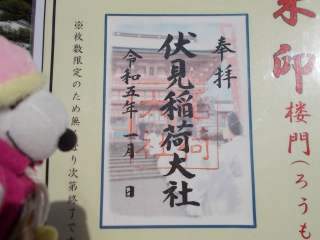 朱印
楼門(ろうも
奉拝
伏見稲荷大社
令和五年一月 日
※枚数限定のため無くなり次第終了で